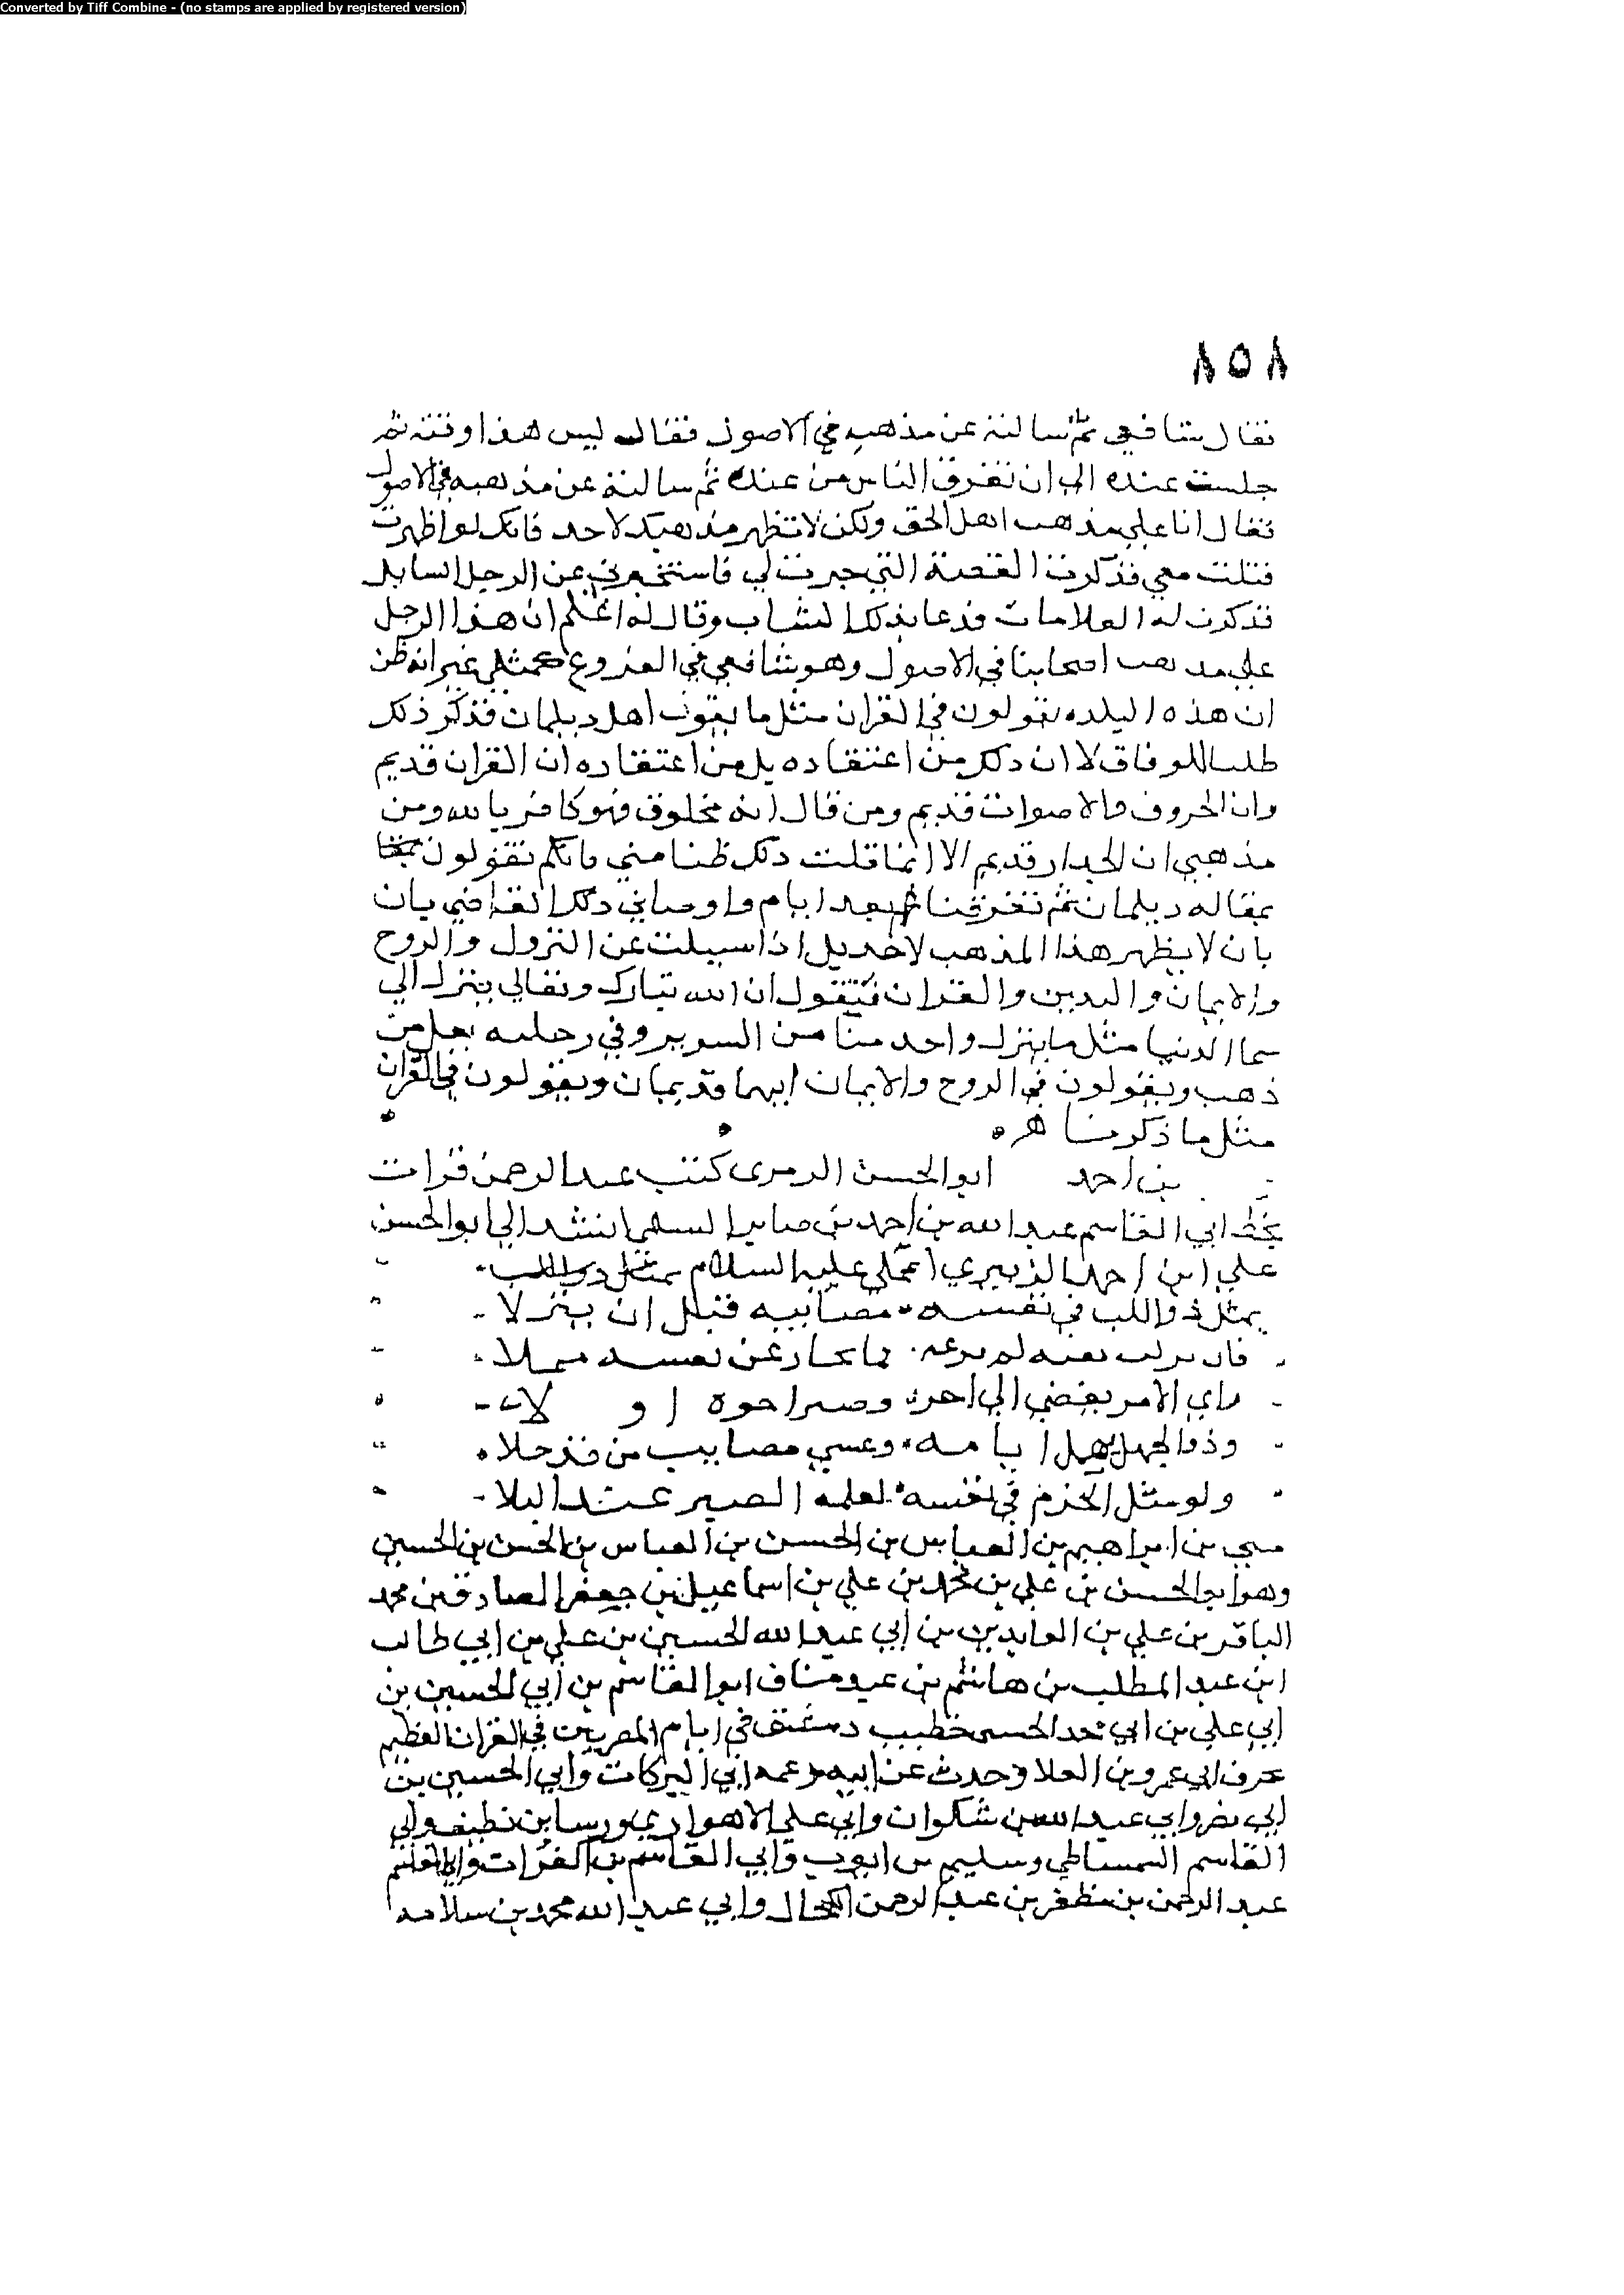 Converted by Tiff Combine - (no stamps are applied by registered version)
٨٥٨
فقال شافعي ثم سالته عن مذهبه في الاصول فقال ليس هذا وقته ثم
جلست عنده الي ان تفرق الناس من عنده ثم سالته عن مذهبه في الاصول
فقال انا علي مذهب اهل الحق ولكن لا تظهر مذهبك لاحد فانك لو اظهرت
قتلت معي فذكرت القصة التي جرت لي فاستخبرني عن الرجل السايل
فذكرت له العلامات فدعا بذلك الشاب وقال له اعلم ان هذا الرجل
علي مدهب اصحابنا في الاصول وهو شافعي في الفروع كمثلي غير انه ظن
ان هذه البلده يقولون في القران مثل ما يقول اهل ديلمان فذكر ذلك
طلبا للوفاق لا ان دلك من اعتقاده بل من اعتقاده ان القران قديم
وان الحروف والاصوات قديم ومن قال انه مخلوق فهو كافر بالله ومن
مذهبي ان الجدار قديم الا انما قلت دلك ظنا مني بانكم تقولون
بمقاله ديلمان ثم تفرقنا بعد ايام واوصاني دلك القاضي بان
بان لا يظهر هذا المذهب لاحد بل اذا سيلت عن النزول والروح
والايمان والدين والقران فتقول ان الله تبارك وتعالي ينزل الي
سما الدنيا مثل ما ينزل واحد منا من السرير وفي رجليه نعل من
ذهب ويقولون في الروح والايمان انهما قديمان ويقولون في القران
مثل ما ذكرنا هـ
بن احمد ابو الحسن كتب عبد الرحمن قرات
بخط ابي القاسم عبد الله بن احمد بن صابر السلمي انشد الي ابو الحسن
علي ابن احمد الزبيري لعلي عليه السلام يمثل ذو اللب
يمثل ذو اللب في نفسه مصايبه قبل ان ينزلا
فان نزلت بغته لم ترعه لما كان عن نفسه مثلا
راي الامر يفضي الي اخر وصير اخره اولا
وذو الجهل يهمل ايامه وعسي مصايب من قد خلا
ولو مثل الحزم في نفسه لعلمه الصبر عند البلا
بن ابراهيم بن العباس بن الحسن بن العباس بن الحسن بن الحسين
وهو ابو الحسن بن علي بن محمد بن علي بن اسماعيل بن جعفر الصادق بن محمد
الباقر بن علي بن العابدين بن ابي عبد الله الحسين بن علي بن ابي طالب
ابن عبد المطلب بن هاشم بن عبد مناف ابو القاسم بن ابي الحسين بن
ابي علي بن ابي محمد الحسى خطيب دمشق في ايام المصريين في القران العظيم
بحرف ابي عمرو بن العلا وحدث عن ابيه وعمه ابي البركات وابي الحسين بن
ابي نصر وابي عبد الله بن شكوان وابي علي الاهوازي ورشا بن نظيف وابي
القاسم السمساطي وسليم بن ايوب وابي القاسم بن الفرات وابي القاسم
عبد الرحمن بن مظفر بن عبد الرحمن الكحال وابي عبد الله محمد بن سلامه